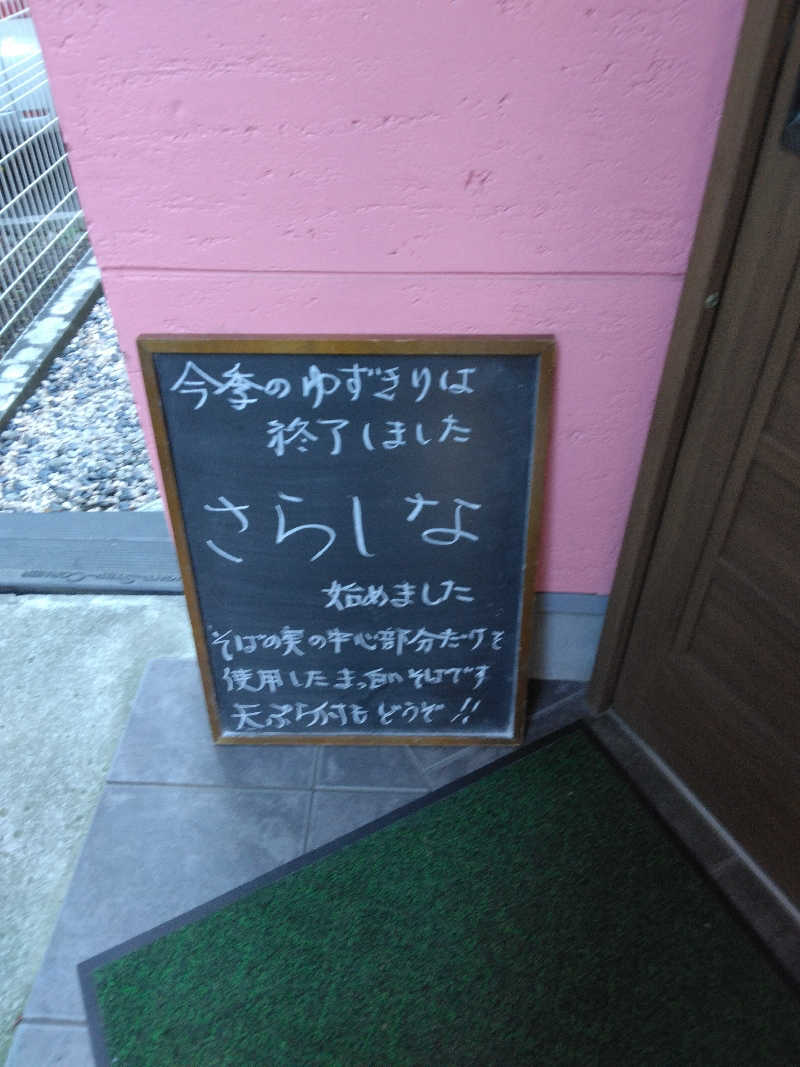 今季のゆずきりは
終了しました
さらしな
始めました
そばの実の中心部分だけを
使用したまっ白いそばです
天ぷら付もどうぞ!!